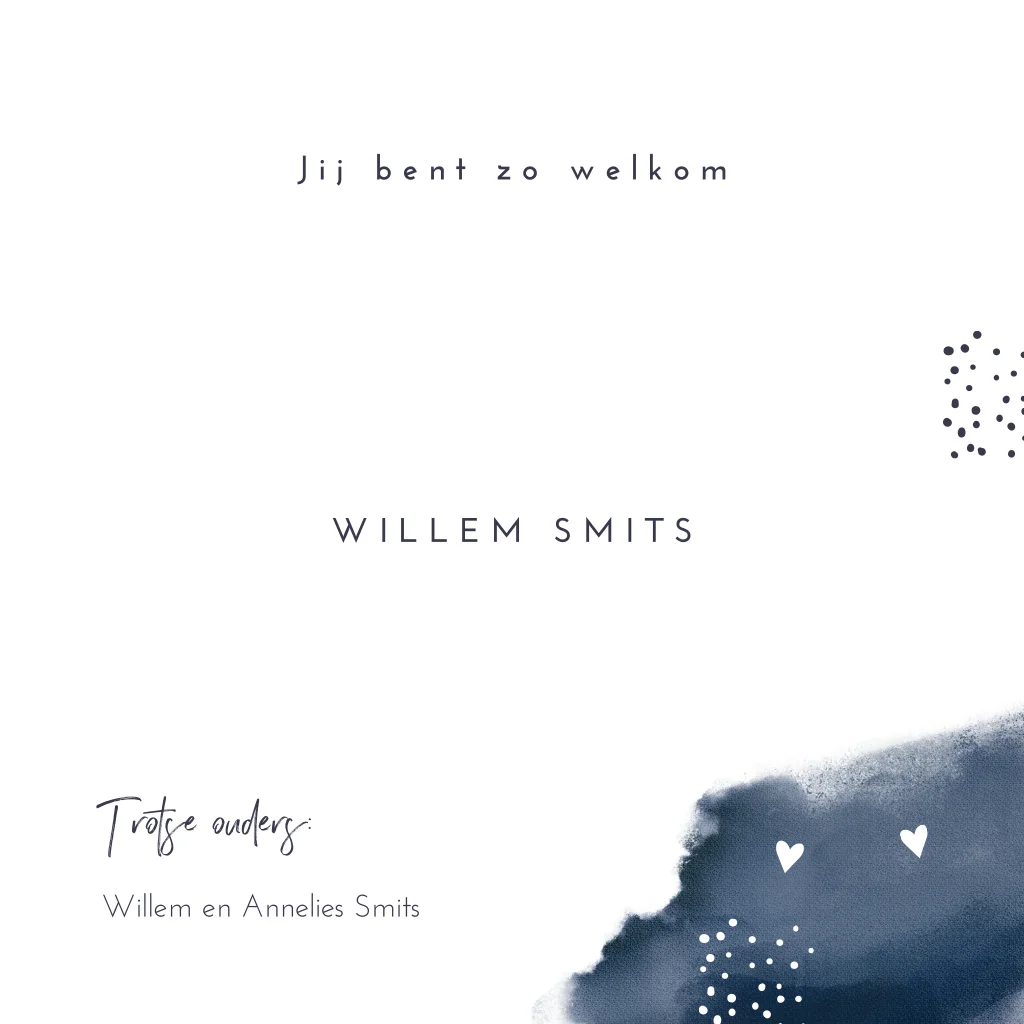 Jij bent zo welkom
WILLEM SMITS
Trotse ouders:
Willem en Annelies Smits